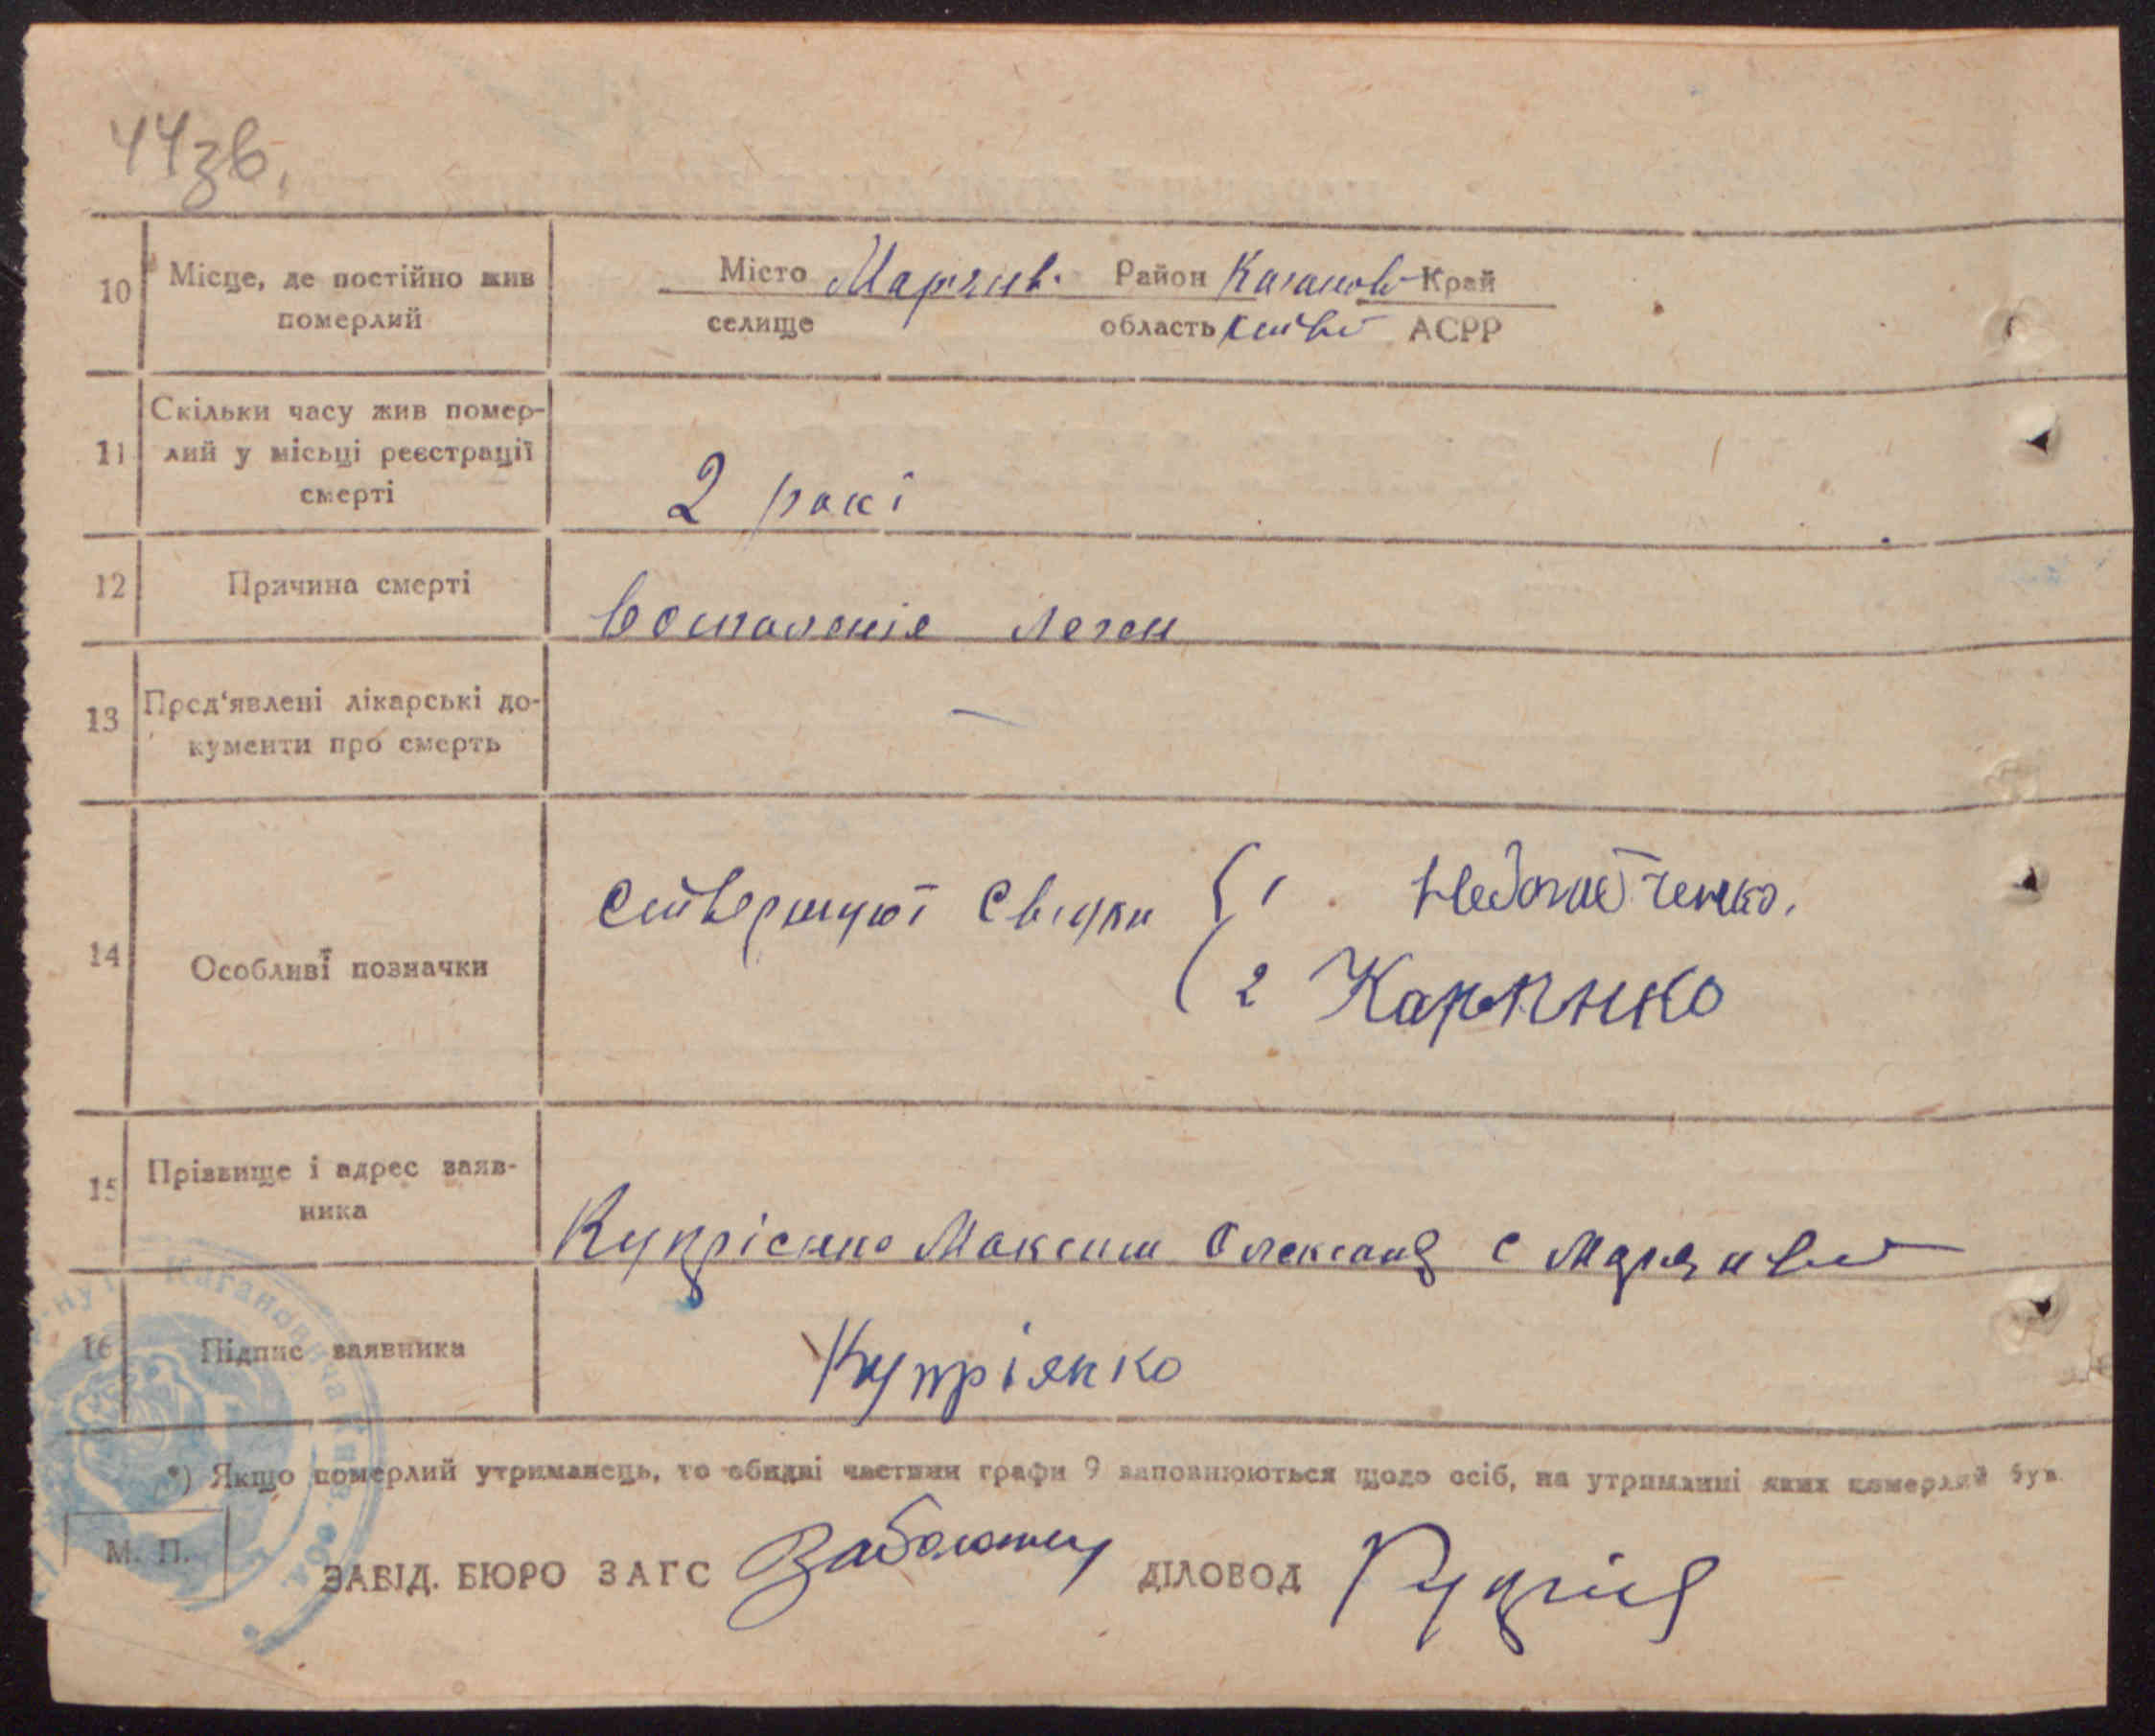 44зв.
10 Місце, де постійно жив померлий
Місто Район Каганов Край
селище область АСРР
11 Скільки часу жив помер-
лий у місьці реєстрації
смерті
2 рокі
12 Причина смерті
Воспаленіе леген
13 Пред'явлені лікарські до-
кументи про смерть
—
14 Особливі позначки
Свідки { 1.
2 Карпнко
15 Прізвище і адрес заяв-
ника
Купрієнко Максим Олександ с
16 Підпис заявника
Купріянко
*) Якщо померлий утриманець, то обидві частини графи 9 заповнюються щодо осіб, на утриманні яких померлий був
М. П.
ЗАВІД. БЮРО ЗАГС ДІЛОВОД
Кагановича Київ. обл.